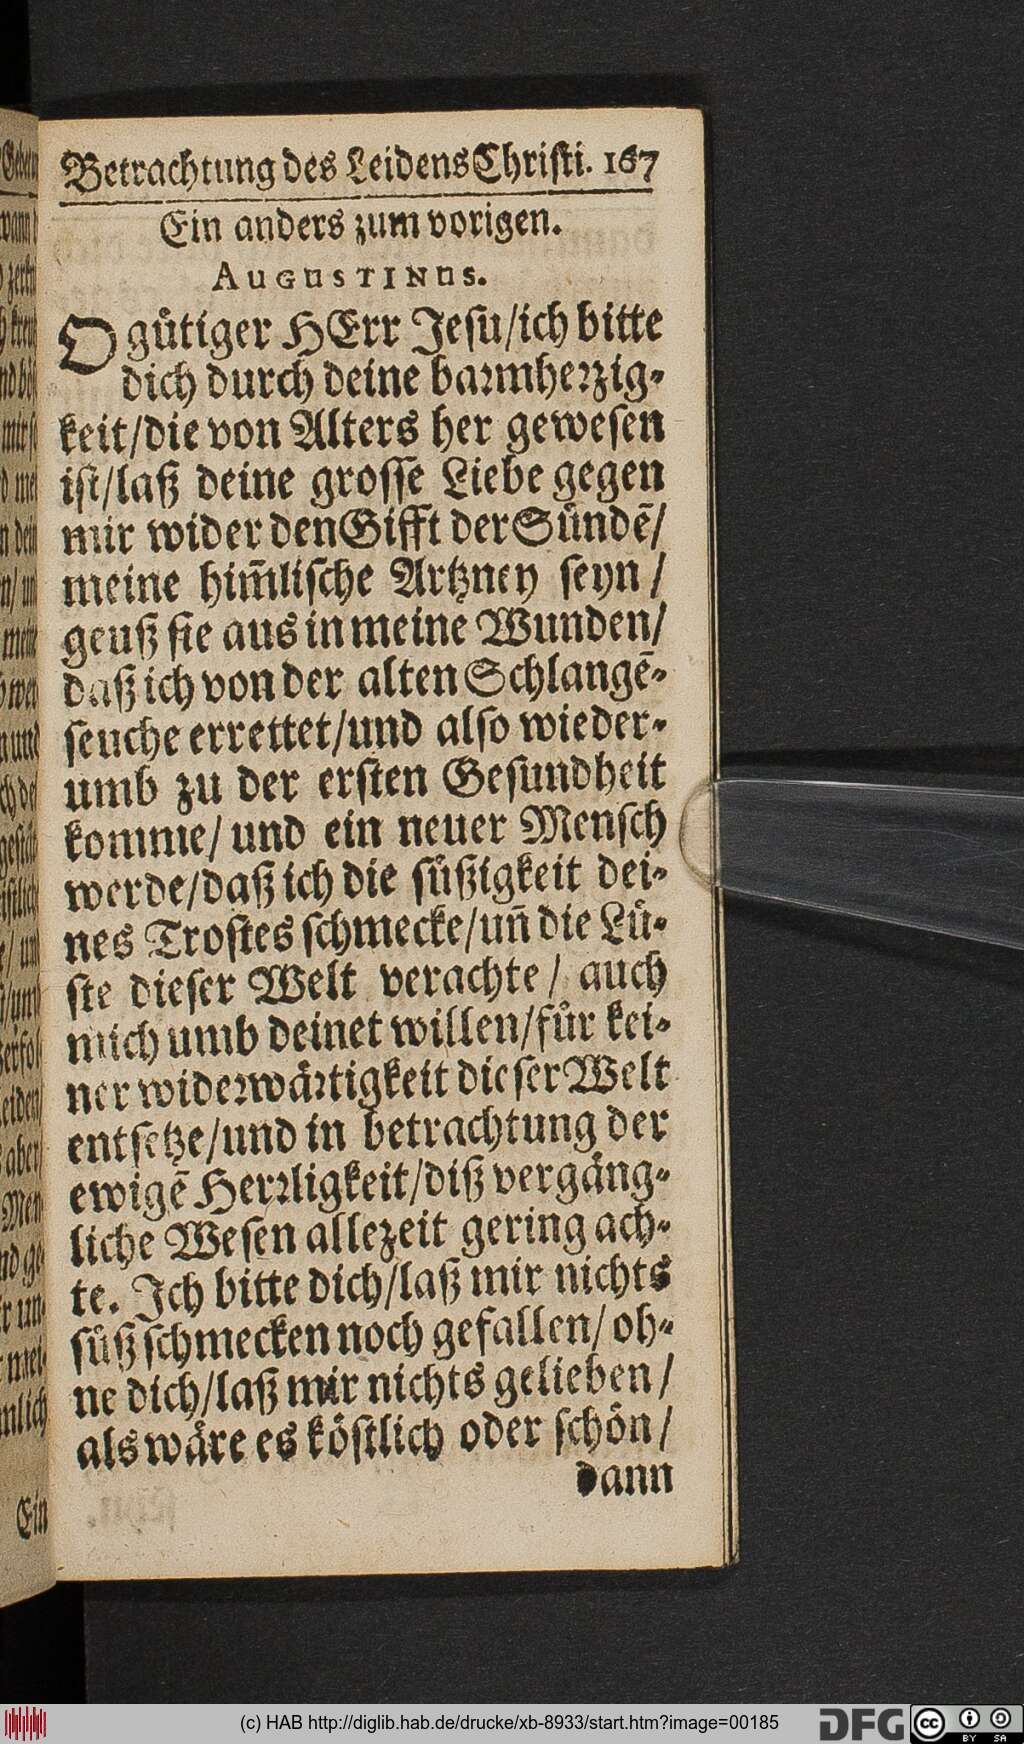 Betrachtung des Leidens Christi. 167
Ein anders zum vorigen.
AUGUSTINUS.
O gütiger HErr Jesu/ich bitte
dich durch deine barmherzig-
keit/die von Alters her gewesen
ist/laß deine grosse Liebe gegen
mir wider den Gifft der Sündẽ/
meine him̃lische Artzney seyn /
geuß sie aus in meine Wunden/
daß ich von der alten Schlangẽ-
seuche errettet/und also wieder-
umb zu der ersten Gesundheit
komme/ und ein neuer Mensch
werde/daß ich die süßigkeit dei-
nes Trostes schmecke/uñ die Lü-
ste dieser Welt verachte / auch
mich umb deinet willen/für kei-
ner widerwärtigkeit dieser Welt
entsetze/und in betrachtung der
ewigẽ Herrligkeit/diß vergäng-
liche Wesen allezeit gering ach-
te. Ich bitte dich/laß mir nichts
süß schmecken noch gefallen/ oh-
ne dich/laß mir nichts gelieben /
als wäre es köstlich oder schön /
dann
Ein
(c) HAB http://diglib.hab.de/drucke/xb-8933/start.htm?image=00185
DFG
cc
BY SA